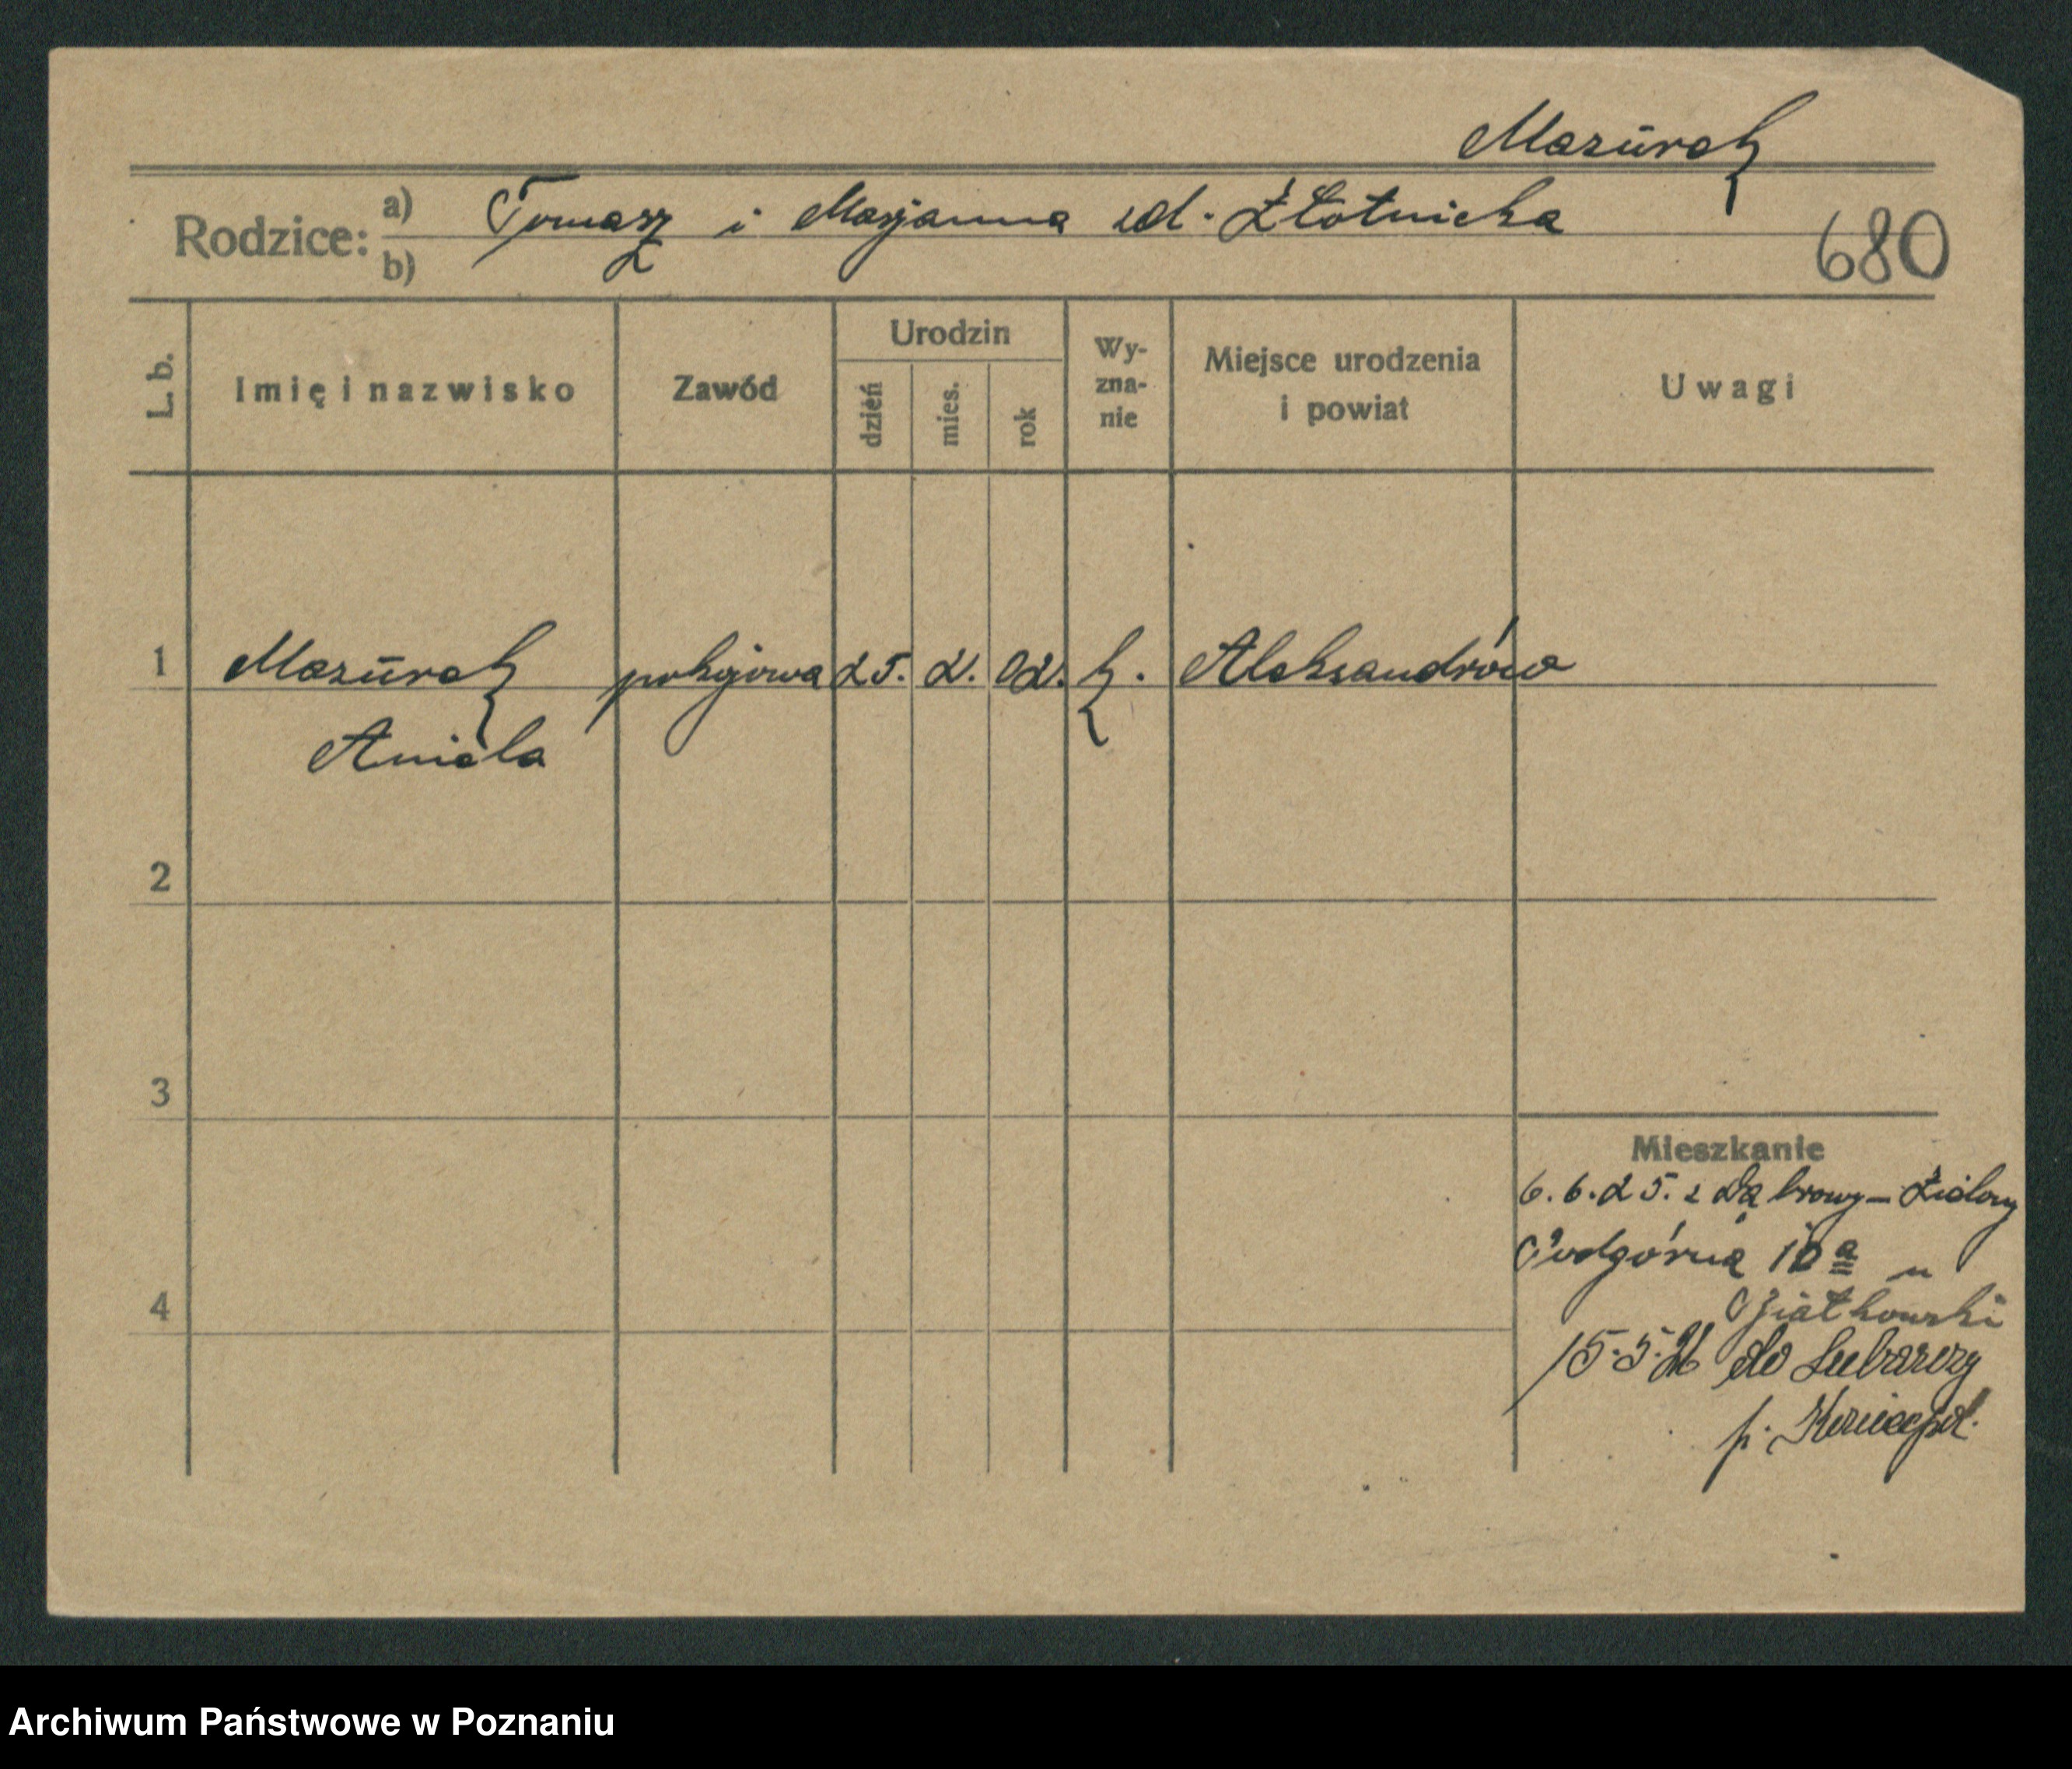 Mazurek
Rodzice: a) Tomasz i Marjanna zd. Złotnicka
b)
680
L. b.
Imię i nazwisko
Zawód
Urodzin
dzień
mies.
rok
Wy-
zna-
nie
Miejsce urodzenia
i powiat
Uwagi
1 Mazurek pokojowa 25. 2. 02. k. Aleksandrów
Aniela
2
3
4
Mieszkanie
6.6.25. z Dąbrowy - Zielony
Podgórna 10a u
15.5.26 do
p.
Archiwum Państwowe w Poznaniu